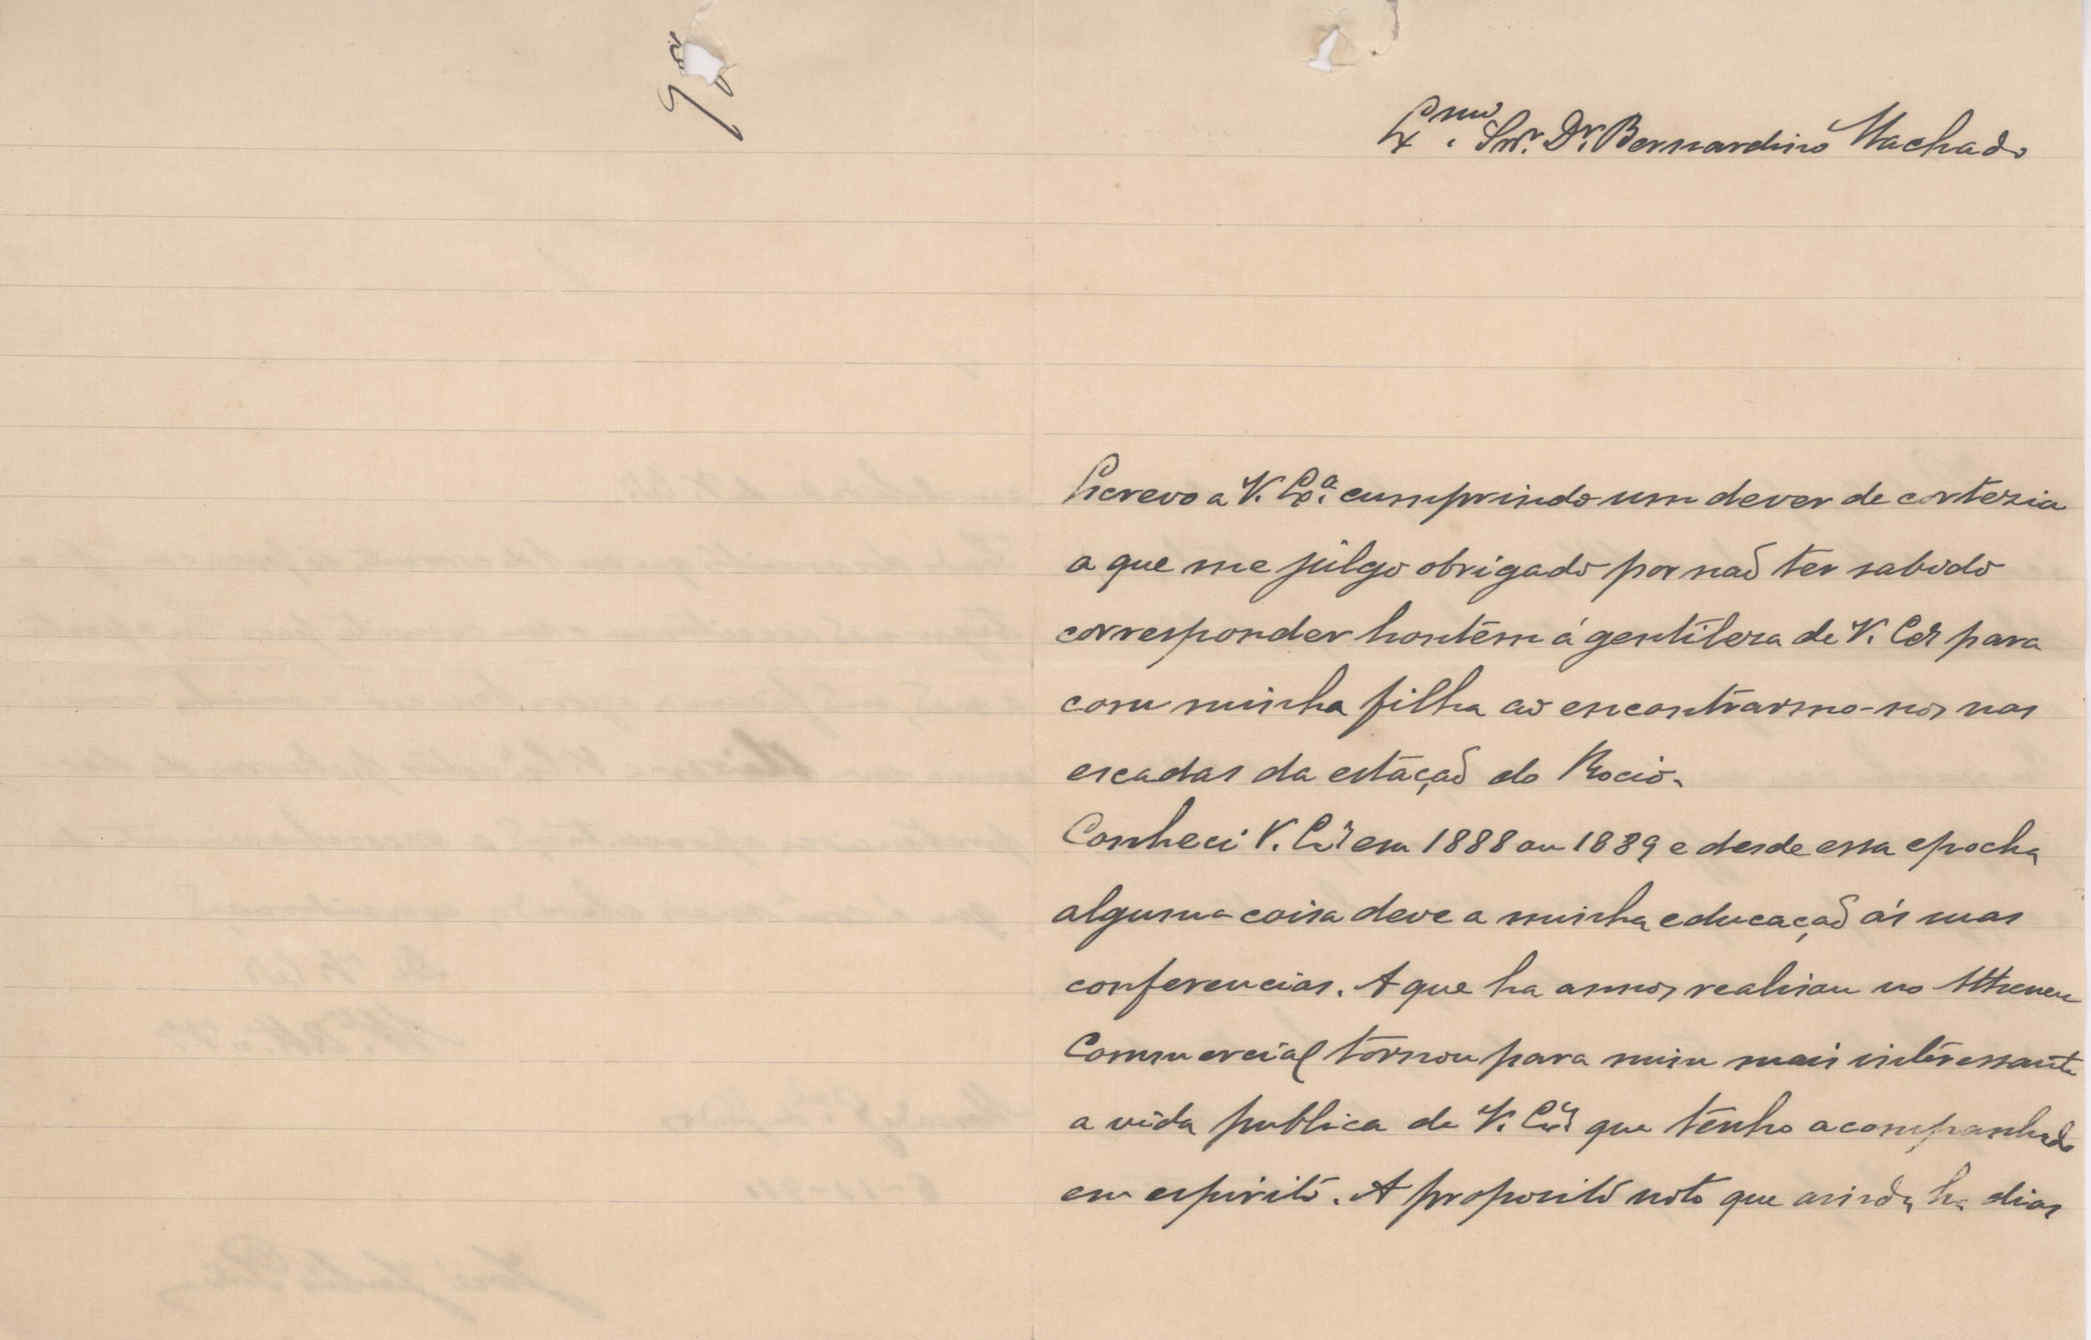 Ex.mo Snr. Dr. Bernardino Machado
Escrevo a V. Ex.a cumprindo um dever de cortezia
a que me julgo obrigado por naõ ter sabido
corresponder hontem á gentileza de V. Ex.a para
com minha filha ao encontrarmo-nos nas
escadas da estaçaõ do Rocio.
Conheci V. Ex.a em 1888 ou 1889 e desde essa epocha
alguma coisa deve a minha educaçaõ ás suas
conferencias. A que ha annos realisou no Atheneu
Commercial tornou para mim mais interessante
a vida publica de V. Ex.a que tenho acompanhado
em espirito. A proposito noto que ainda ha dias